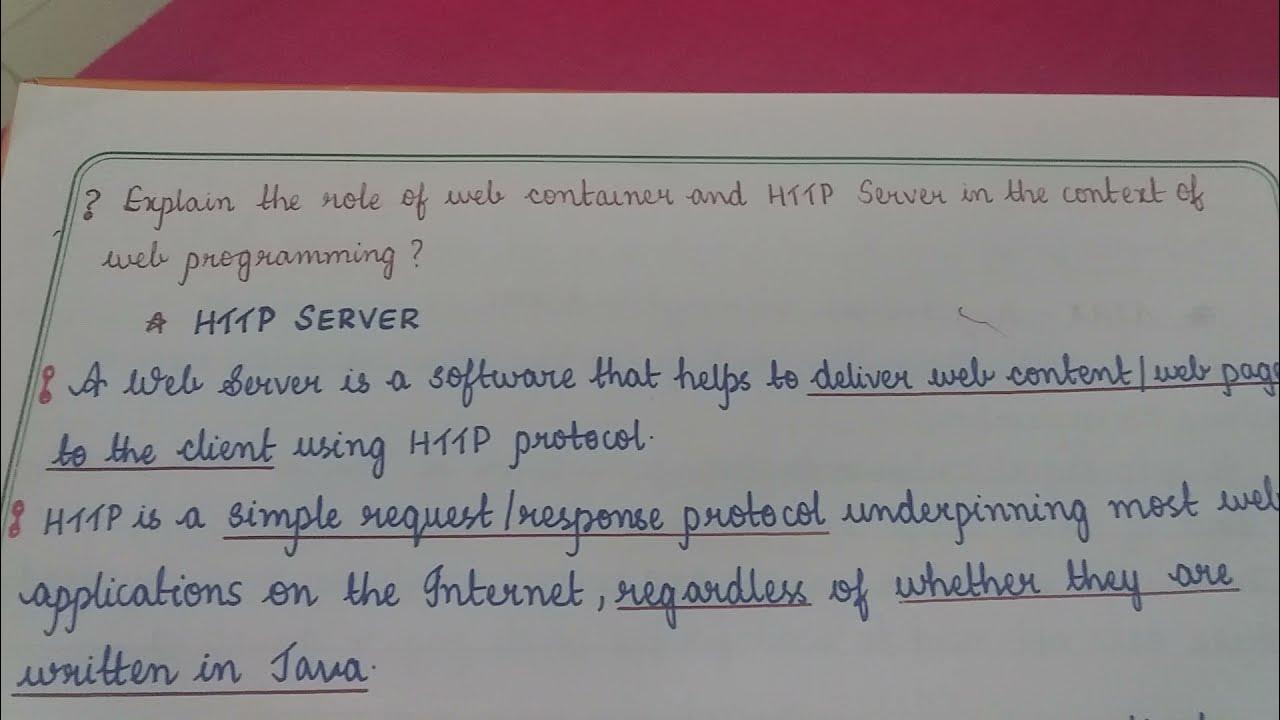 ? Explain the role of web container and HTTP Server in the context of
web programming ?
☆ HTTP SERVER
A Web Server is a software that helps to deliver web content/web page
to the client using HTTP protocol.
HTTP is a simple request/response protocol underpinning most web
applications on the Internet, regardless of whether they are
written in Java.